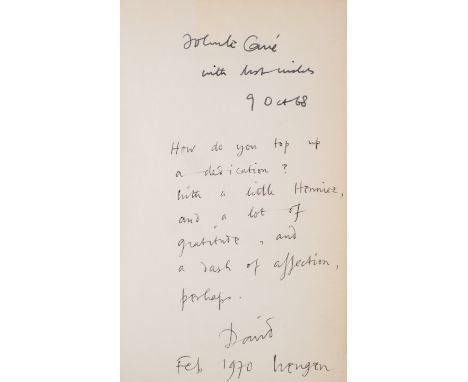 John le Carré
with best wishes
9 Oct 68
How do you top up
a dedication?
With a little Henniez,
and a lot of
gratitude, and
a dash of affection,
perhaps.
David
Feb 1970 Wengen